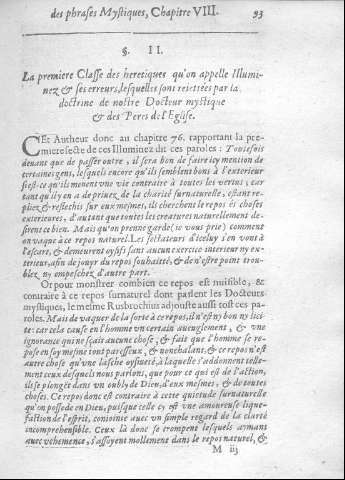 des phrases Mystiques, Chapitre VIII. 93
§. II.
La premiere Classe des heretiques qu'on appelle Illumi-
nez & ses erreurs, lesquelles sont reiettées par la
doctrine de nostre Docteur mystique
& des Peres de l'Eglise.
CEt Autheur donc au chapitre 76. rapportant la pre-
miere secte de ces Illuminez dit ces paroles : Toutesfois
deuant que de passer outre, il sera bon de faire icy mention de
certaines gens, lesquels encore qu'ils semblent bons à l'exterieur
si est-ce qu'ils menent vne vie contraire à toutes les vertus; car
tant qu'il y en a de priuez de la charité surnaturelle, estant re-
pliez & reflechis sur eux mesmes, ils cherchent le repos és choses
exterieures, d'autant que toutes les creatures naturellement de-
sirent ce bien. Mais qu'on prenne garde (ie vous prie) comment
on vaque à ce repos naturel. Les sectateurs d'iceluy s'en vont à
l'escart, & demeurent oysifs sans aucun exercice interieur ny ex-
terieur, afin de jouyr du repos souhaitté, & de n'estre point trou-
blez ny empeschez d'autre part.
Or pour monstrer combien ce repos est nuisible, &
contraire à ce repos surnaturel dont parlent les Docteurs
mystiques, le mesme Rusbrochius adjouste aussi tost ces pa-
roles. Mais de vaquer de la sorte à ce repos, il n'est ny bon ny lici-
te: car cela cause en l'homme vn certain aueuglement, & vne
ignorance qui ne sçait aucune chose, & fait que l'homme se re-
pose en soy mesme tout paresseux, & nonchalant, & ce repos n'est
autre chose qu'vne lasche oysiueté, à laquelle s'addonnent telle-
ment ceux desquels nous parlons, que pour ce qui est de l'action,
ils se plongét dans vn oubly de Dieu, d'eux mesmes, & de toutes
choses. Ce repos donc est contraire à cette quietude surnaturelle
qu'on possede en Dieu, puisque telle cy est vne amoureuse lique-
faction de l'esprit, conioincte auec vn simple regard de la clarté
incomprehensible. Ceux là donc se trompent lesquels aymans
auec vehemence, s'assoyent mollement dans le repos naturel, &
M iij